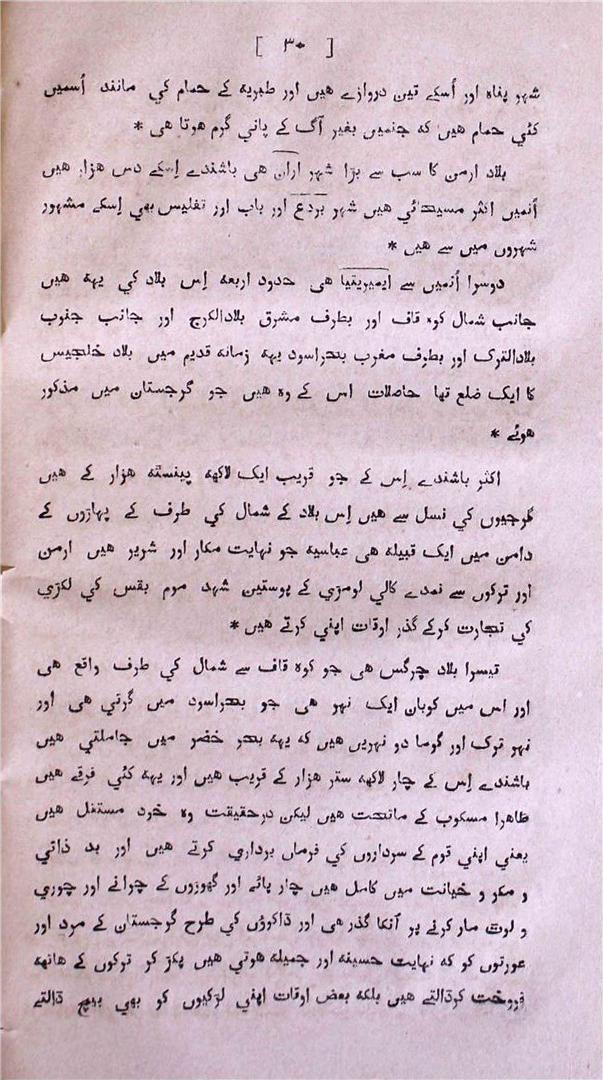 [ ۳۰ ]
شہر پناہ اور اُسکے تین دروازے ہیں اور طبریہ کے حمام کي مانند اُسمیں
کئي حمام ہیں کہ جنمیں بغیر آگ کے پاني گرم ہوتا ہی *
بلاد ارمن کا سب سے بڑا شہر اران ہی باشندے اِسکے دس ہزار ہیں
اُنمیں اکثر مسیحائي ہیں شہر بردع اور باب اور تفلیس بھی اِسکے مشہور
شہروں میں سے ہیں *
دوسرا اُنمیں سے ایمیریتیا ہی حدود اربعہ اِس بلاد کي یہہ ہیں
جانب شمال کوہ قاف اور بطرف مشرق بلادالکرج اور جانب جنوب
بلادالترک اور بطرف مغرب بحراسود یہہ زمانہ قدیم میں بلاد خلجیس
کا ایک ضلع تھا حاصلات اس کے وہ ہیں جو گرجستان میں مذکور
ہوئے *
اکثر باشندے اِس کے جو قریب ایک لاکھہ پینسٹہ ہزار کے ہیں
گرجیوں کي نسل سے ہیں اِس بلاد کے شمال کي طرف کے پہاڑوں کے
دامن میں ایک قبیلہ ہی عباسیہ جو نہایت مکار اور شریر ہیں ارمن
اور ترکوں سے نمدے کالي لومڑي کے پوستین شہد موم بقس کي لکڑي
کي تجارت کرکے گذر اوقات اپني کرتے ہیں *
تیسرا بلاد چرگس ہی جو کوہ قاف سے شمال کي طرف واقع ہی
اور اس میں کوبان ایک نہر ہی جو بحراسود میں گرتي ہی اور
نہر ترک اور گوما دو نہریں ہیں کہ یہہ بحر خضر میں جاملتي ہیں
باشندے اِس کے چار لاکھہ ستر ہزار کے قریب ہیں اور یہہ کئي فرقے ہیں
ظاہرا مسکوب کے ماتحت ہیں لیکن درحقیقت وہ خود مستقل ہیں
یعني اپني قوم کے سرداروں کي فرماں برداري کرتے ہیں اور بد ذاتي
و مکر و خیانت میں کامل ہیں چار پائے اور گھوڑوں کے چرانے اور چوري
و لوٹ مار کرنے پر اُنکا گذر ہی اور ڈاکوؤں کي طرح گرجستان کے مرد اور
عورتوں کو کہ نہایت حسینہ اور جمیلہ ہوتي ہیں پکڑ کر ترکوں کے ہاتھہ
فروخت کرڈالتے ہیں بلکہ بعض اوقات اپني لڑکیوں کو بھي بیچ ڈالتے